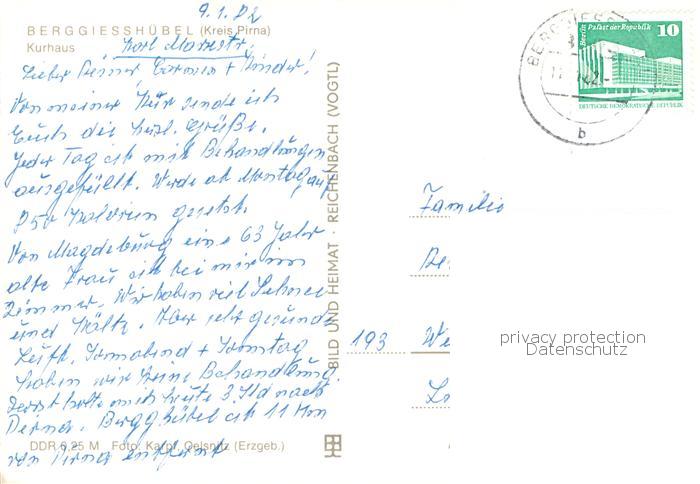 9.1.82
BERGGIESSHÜBEL (Kreis Pirna)
Kurhaus
Karl Marxstr.
Lieber Heiner, Carmen + Kinder!
Von meiner Kur sende ich
Euch die herzl. Grüße.
Jeder Tag ist mit Behandlungen
ausgefüllt. Werde ab Montag auf
850 Kalorien gesetzt.
Von Magdeburg eine 63 Jahr
alte Frau ist bei mir im
Zimmer. Wir haben viel Schnee
und Kälte. Aber sehr gesunde
Luft. Sonnabend + Sonntag
haben wir keine Behandlung.
holte mich heute 3 Std nach
Pirna. Bergghübel ist 11 km
von Pirna entfernt
DDR 0,25 M Foto: Karpf, Oelsnitz (Erzgeb.)
BILD UND HEIMAT REICHENBACH (VOGTL)
BERGGIESS
b
Berlin, Palast der Republik
10
DEUTSCHE DEMOKRATISCHE REPUBLIK
Familie
193 We
privacy protection
Datenschutz